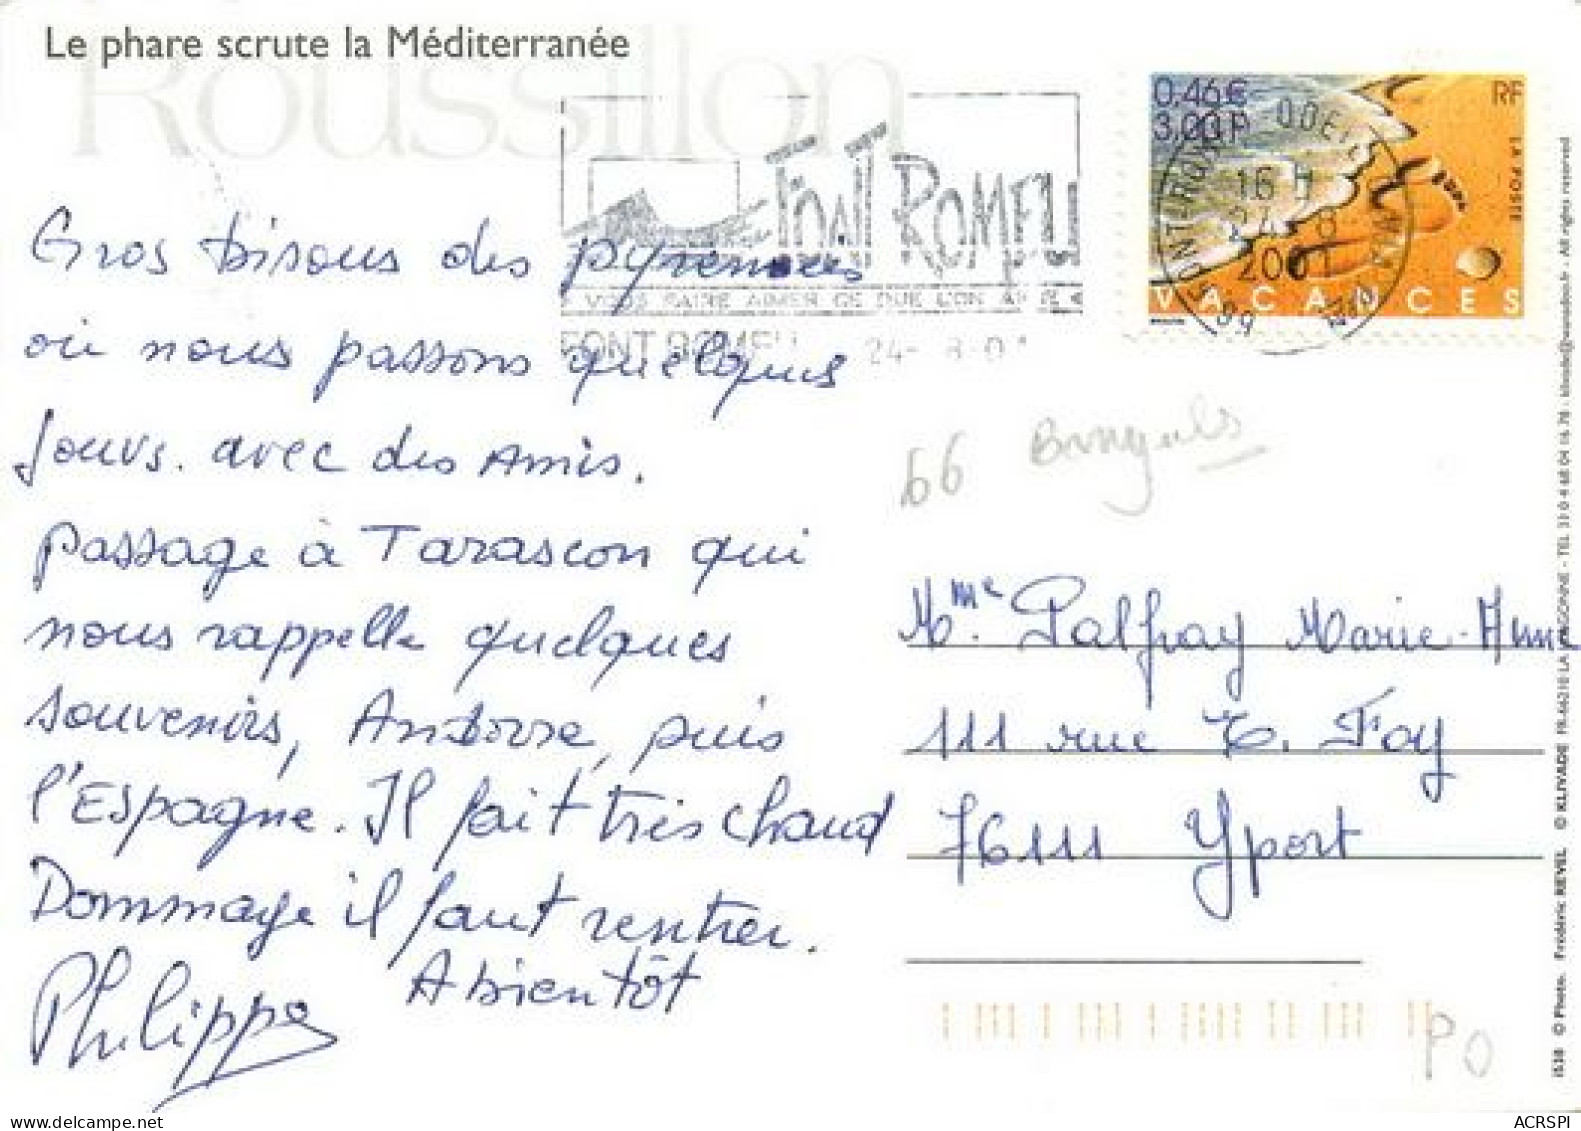 Le phare scrute la Méditerranée
Roussillon
0,46€
3,00 F
RF
LA POSTE
VACANCES
16 H
24 8
2001
FONT ROMEU
VOUS FAIRE AIMER CE QUE L'ON AIME
FONT ROMEU 24- 8-01
Gros bisous des pyrennees
où nous passons quelques
jours. avec des Amis.
passage à Tarascon qui
nous rappelle quelques
souvenirs, Andorre, puis
l'Espagne. Il fait très chaud
Dommage il faut rentrer.
A bientôt
Philippe
66 Banyuls
Mme. Palfray Marie-Anne
111 rue E. Foy
76111 Yport
PO
© Photo. Frédéric REVEL © KLIVADE FR-66210 LA LLAGONNE - TEL 33 0 4 68 04 16 78 - klivade@wanadoo.fr - All rights reserved
ACRSPI